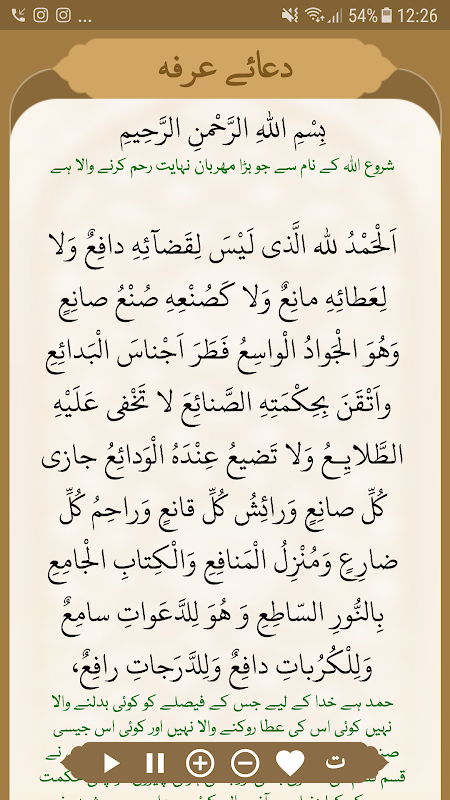 ... 54% 12:26
دعائے عرفہ
بِسْمِ اللهِ الرَّحْمنِ الرَّحِيمِ
شروع اللہ کے نام سے جو بڑا مهربان نہایت رحم کرنے والا ہے
اَلْحَمْدُ لله الَّذى لَيْسَ لِقَضآئِهِ دافِعٌ وَلا
لِعَطائِهِ مانِعٌ وَلا كَصُنْعِهِ صُنْعُ صانِعٍ
وَهُوَ الْجَوادُ الْواسِعُ فَطَرَ اَجْناسَ الْبَدائِعِ
واَتْقَنَ بِحِكْمَتِهِ الصَّنائِعَ لا تَخْفى عَلَيْهِ
الطَّلايِـعُ وَلا تَضيعُ عِنْدَهُ الْوَدائِعُ جازى
كُلِّ صانِعٍ وَرائِشُ كُلِّ قانعٍ وَراحِمُ كُلِّ
ضارِعٍ وَمُنْزِلُ الْمَنافِعِ وَالْكِتابِ الْجامِعِ
بِالنُّورِ السّاطِعِ وَ هُوَ لِلدَّعَواتِ سامِعٌ
وَلِلْكُرُباتِ دافِعٌ وَلِلدَّرَجاتِ رافِعٌ،
حمد ہے خدا کے لیے جس کے فیصلے کو کوئی بدلنے والا
نہیں کوئی اس کی عطا روکنے والا نہیں اور کوئی اس جیسی
ت